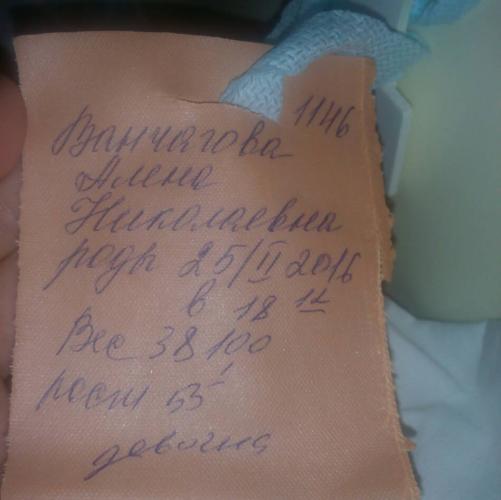 1146
Ванчагова
Алена
Николаевна
роды 25/II 2016
в 18 12
Вес 38100
рост 53
девочка